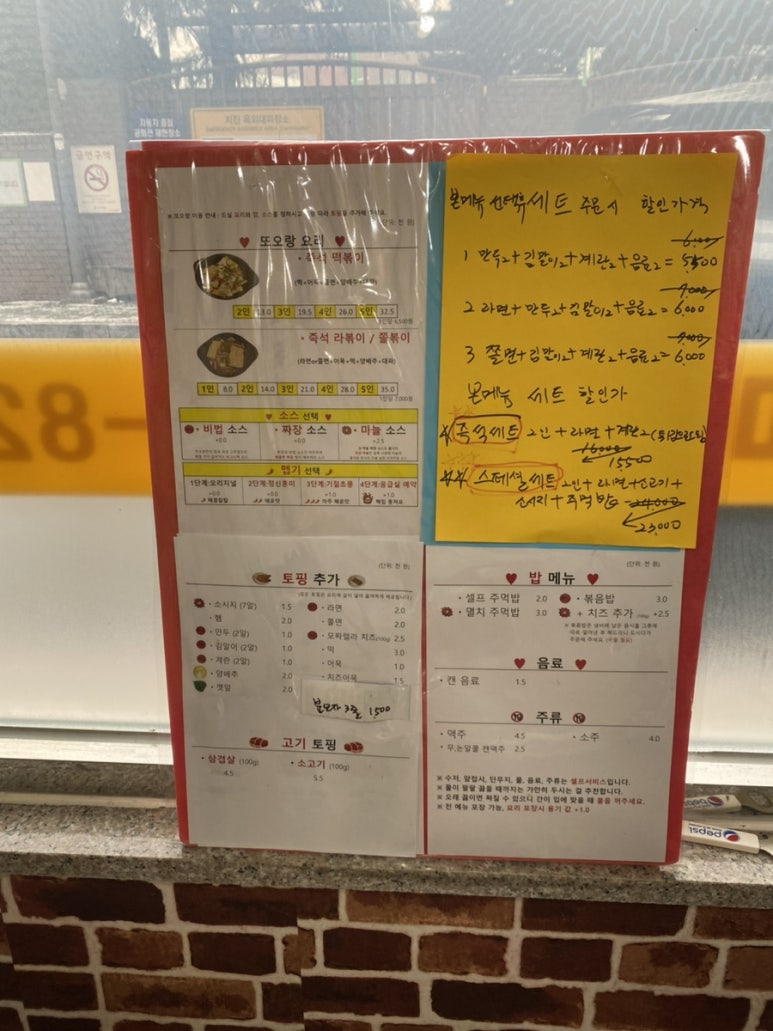 자동차 공회전 제한장소
지진 옥외대피장소
금연구역
※ 또오랑 이용 안내 - 드실 요리와 맵, 소스를 정하시고
(단위: 천 원)
♥ 또오랑 요리 ♥
· 즉석 떡볶이
(떡+어묵+쫄면+양배추+대파)
2인 13.0 3인 19.5 4인 26.0 5인 32.5
1인당 6,500원
· 즉석 라볶이 / 쫄볶이
(라면or쫄면+어묵+떡+양배추+대파)
1인 8.0 2인 14.0 3인 21.0 4인 28.0 5인 35.0
1인당 7,000원
♥ 소스 선택 ♥
· 비법 소스 +0.0
· 짜장 소스 +0.0
· 마늘 소스 +2.5
맵기 선택
1단계:오리지널 +0.0 매콤찹찹
2단계:정신혼미 +0.0 매운맛
3단계:기절초풍 +1.0 아주 매운맛
4단계:응급실 예약 +1.0 책임 못져요
본메뉴 선택후 세트 주문시 할인가격
1 만두2+김말이2+계란2+음료2= 6,000 5,500
2 라면+만두2+김말이2+음료2= 7,000 6,000
3 쫄면+김말이2+계란2+음료2= 7,000 6,000
본메뉴 세트 할인가
즉석세트 2인+라면+계란2
16000
15,500
스페셜세트 2인+라면+소고기+
소시지+주먹밥 24,000
23,000
(단위: 천 원)
토핑 추가
· 소시지 (7알) 1.5
· 햄 2.0
· 만두 (2알) 1.0
· 김말이 (2알) 1.0
· 계란 (2알) 1.0
· 양배추 2.0
· 깻잎 2.0
· 라면 2.0
· 쫄면 2.0
· 모짜렐라 치즈(100g) 2.5
· 떡 3.0
· 어묵 1.0
· 치즈어묵 1.5
분모자 3줄 1,500
고기 토핑
· 삼겹살 (100g) 4.5
· 소고기 (100g) 5.5
(단위: 천 원)
♥ 밥 메뉴 ♥
· 셀프 주먹밥 2.0
· 멸치 주먹밥 3.0
· 볶음밥 3.0
+ 치즈 추가 (100g) +2.5
♥ 음료 ♥
· 캔 음료 1.5
주류
· 맥주 4.5
· 소주 4.0
· 무,논알콜 캔맥주 2.5
※ 수저, 앞접시, 단무지, 물, 음료, 주류는 셀프서비스입니다.
※ 물이 팔팔 끓을 때까지는 가만히 두시는 걸 추천합니다.
※ 오래 끓이면 짜질 수 있으니 간이 입에 맞을 때 불을 꺼주세요.
※ 전 메뉴 포장 가능, 요리 포장시 용기 값 +1.0
pepsi
pepsi